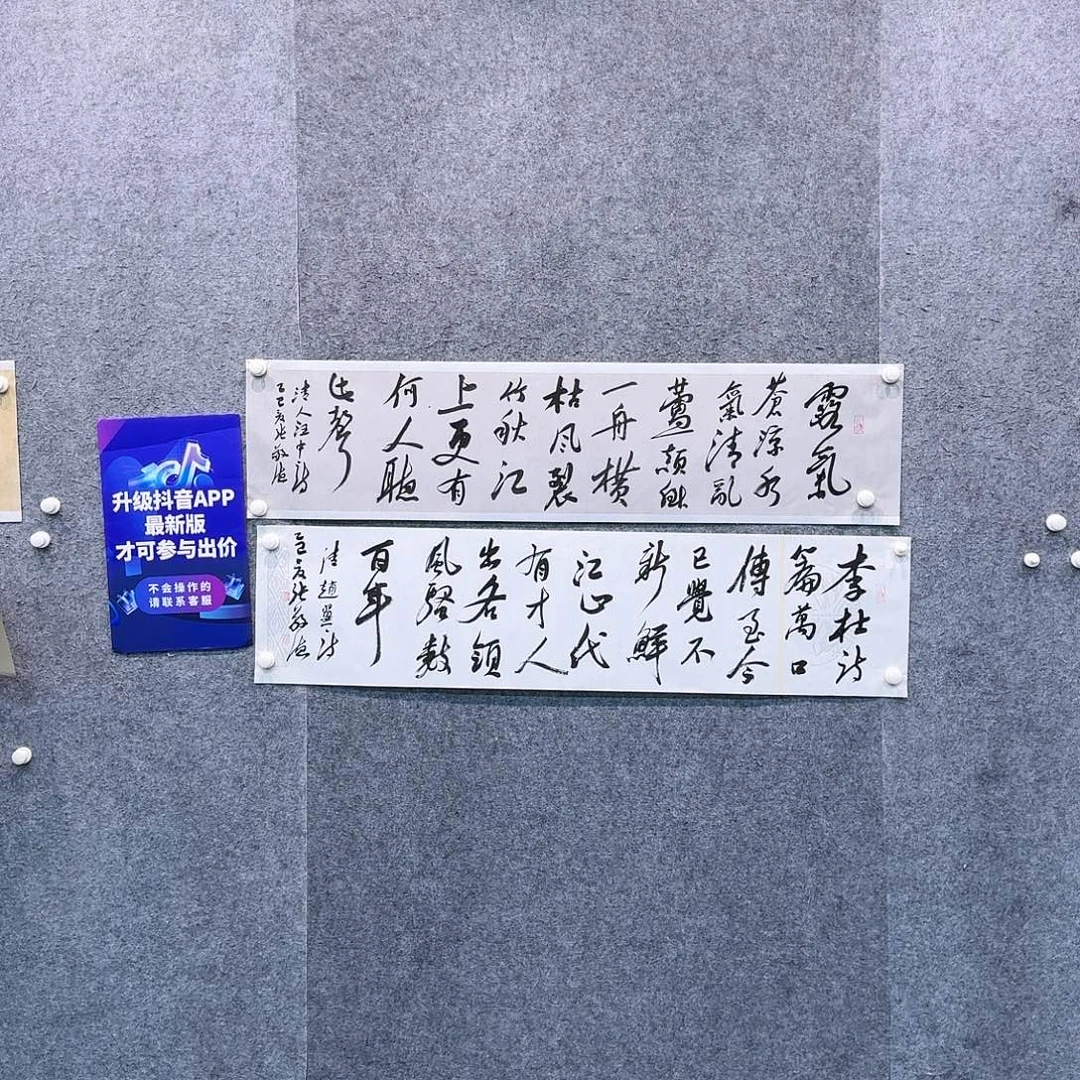 升级抖音APP
最新版
才可参与出价
不会操作的
请联系客服
露氣
蒼涼水
氣清亂
頹
一舟橫
枯風裂
竹秋江
上更有
何人聽
此聲
清人汪中詩
乙巳夏張敬
李杜詩
篇萬口
傳至今
已覺不
新鮮
江山代
有才人
出各領
風騷數
百年
清趙翼詩
乙巳夏張敬